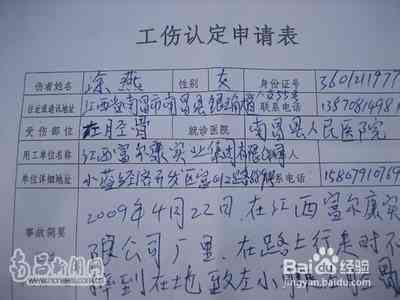 工伤认定申请表
伤者姓名 涂燕 性别 女 身份证号 3601211977
住址或通讯地址 江西省南昌市南昌县 联系电话 1387081498
受伤部位 左胫骨 就诊医院 南昌县人民医院
用工单位名称 江西富尔康实业集团有限公司
单位详细地址 小蓝经济开发区 联系电话 15867910769
事故简要 2009年4月22日,在江西富尔康实
限公司厂里,在路上行走时不
摔到在地,致左小
南昌新闻网
Baidu百度经验